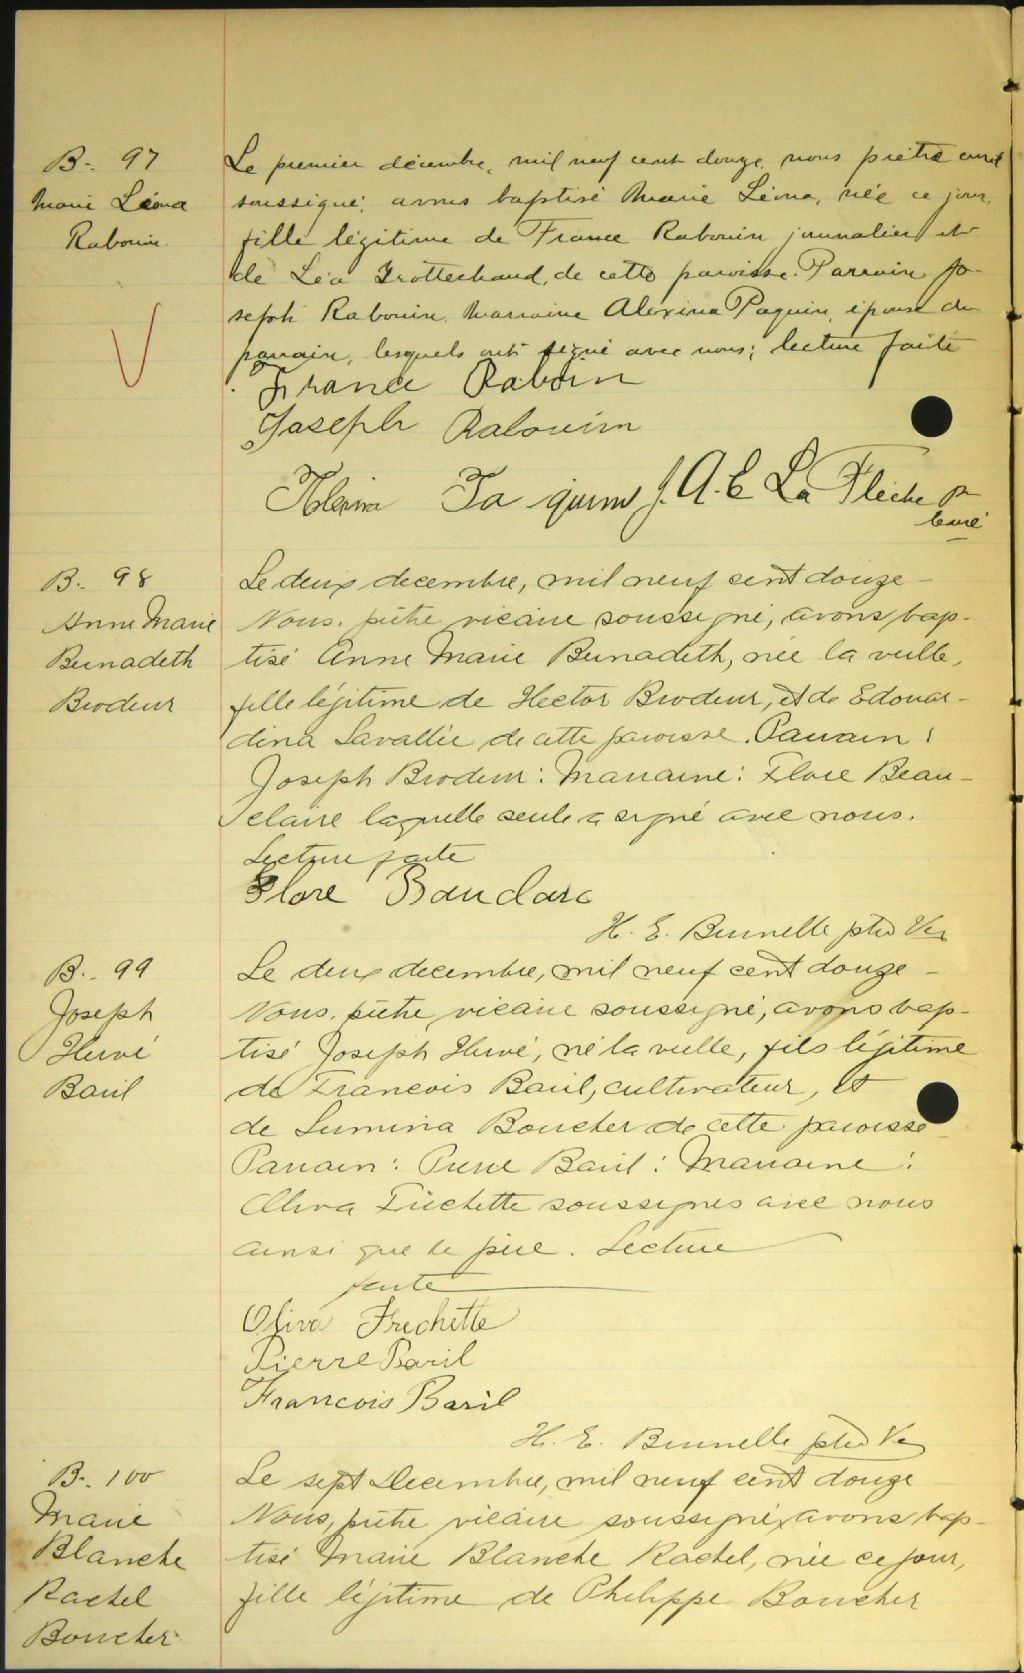 B-. 97
Marie Léona
Rabouin
Le premier décembre, mil neuf cent douze, nous prêtre curé
soussigné, avons baptisé Marie Léona, née ce jour,
fille légitime de France Rabouin journalier et
de Léa Trottechaud, de cette paroisse. Parrain Jo-
seph Rabouin, Marraine Alexina Paquin, épouse du
parrain, lesquels ont signé avec nous; lecture faite
France Raboin
Joseph Rabouin
Alexina Paquin J. A. E La Flèche ptre
curé
B-. 98
Anne Marie
Bernadeth
Brodeur
Le deux decembre, mil neuf cent douze -
Nous. prêtre vicaire soussigné, avons bap-
tisé Anne Marie Bernadeth, née la veille,
fille légitime de Hector Brodeur, et de Edouar-
dina Lavallée de cette paroisse. Parrain :
Joseph Brodeur : Marraine : Flore Beau-
claire laquelle seule a signé avec nous.
Lecture faite
Flore Bauclarc
H. E. Brunelle ptre Vic
B-. 99
Joseph
Hervé
Baril
Le deux decembre, mil neuf cent douze -
Nous. prêtre, vicaire soussigné, avons bap-
tisé Joseph Hervé, né la veille, fils légitime
de Francois Baril, cultivateur, et
de Lumina Boucher de cette paroisse -
Parrain : Pierre Baril : Marraine :
Oliva Fréchette soussignés avec nous
ainsi que le père. Lecture
faite
Oliva Frechette
Pierre Baril
Francois Baril
H. E. Brunelle ptre Vic
B-. 100
Marie
Blanche
Rachel
Boucher
Le sept Decembre, mil neuf cent douze
Nous, prêtre vicaire soussigné, avons bap-
tisé Marie Blanche Rachel, née ce jour,
fille légitime de Philippe Boucher